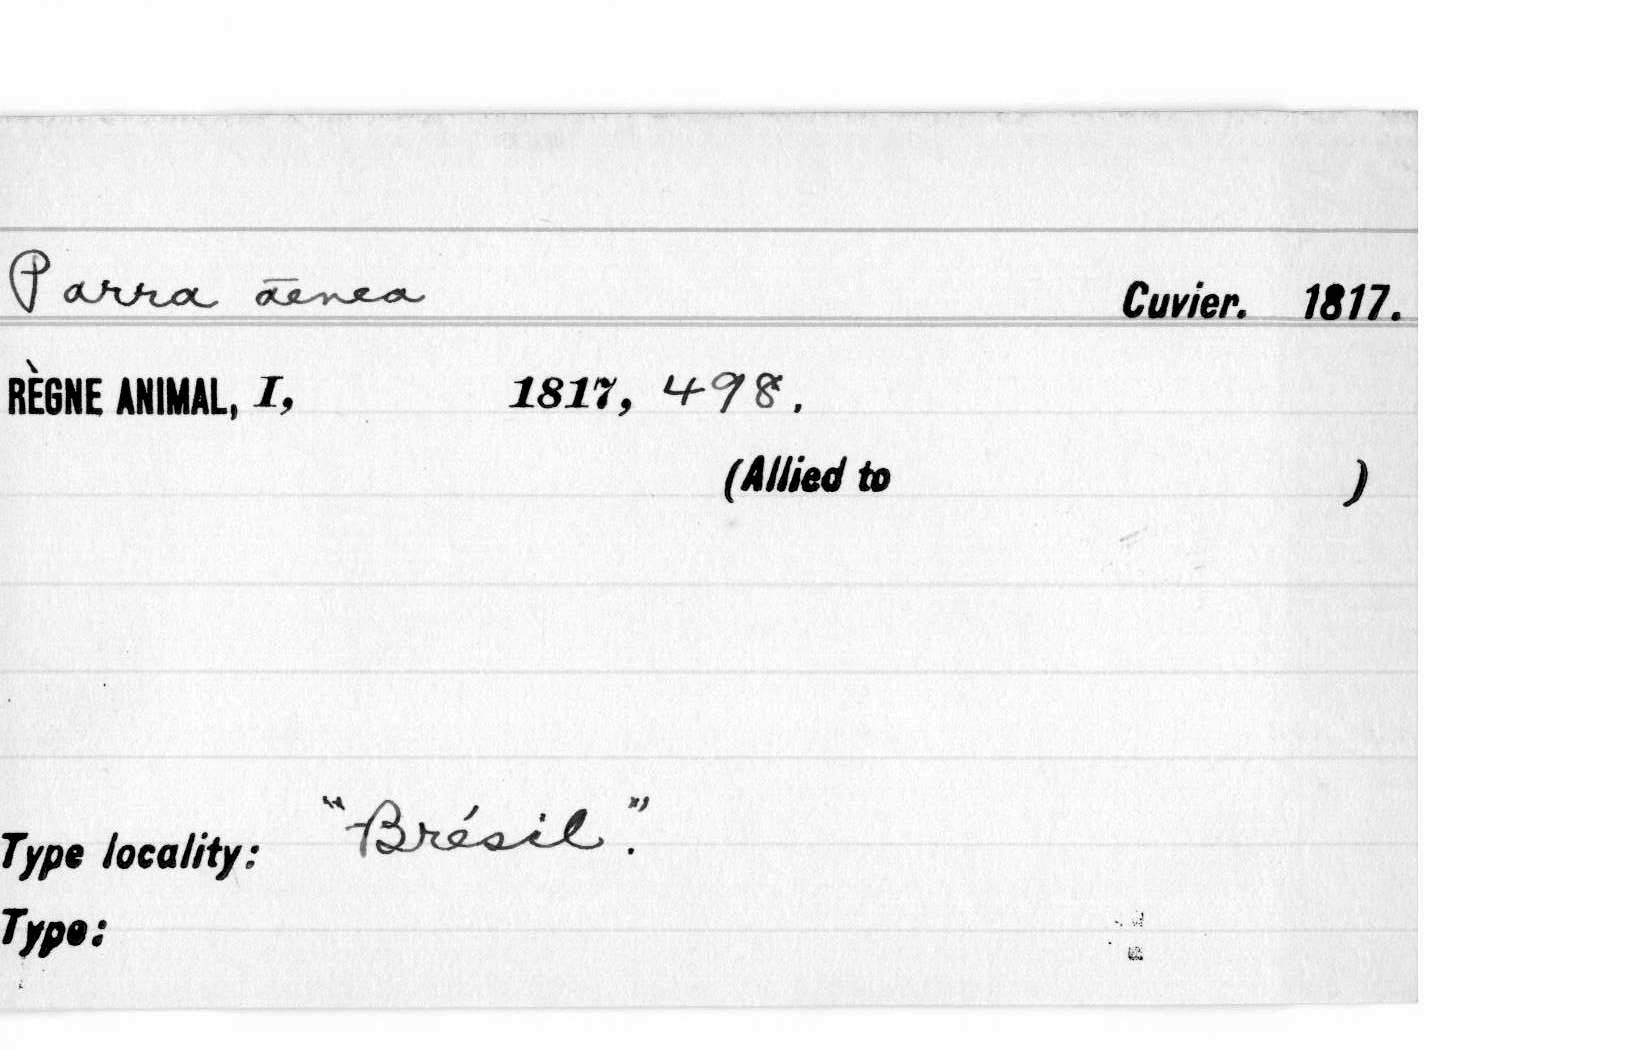 Parra āenea Cuvier. 1817.
RÈGNE ANIMAL, I, 1817, 498.
(Allied to )
Type locality: "Brésil".
Type: